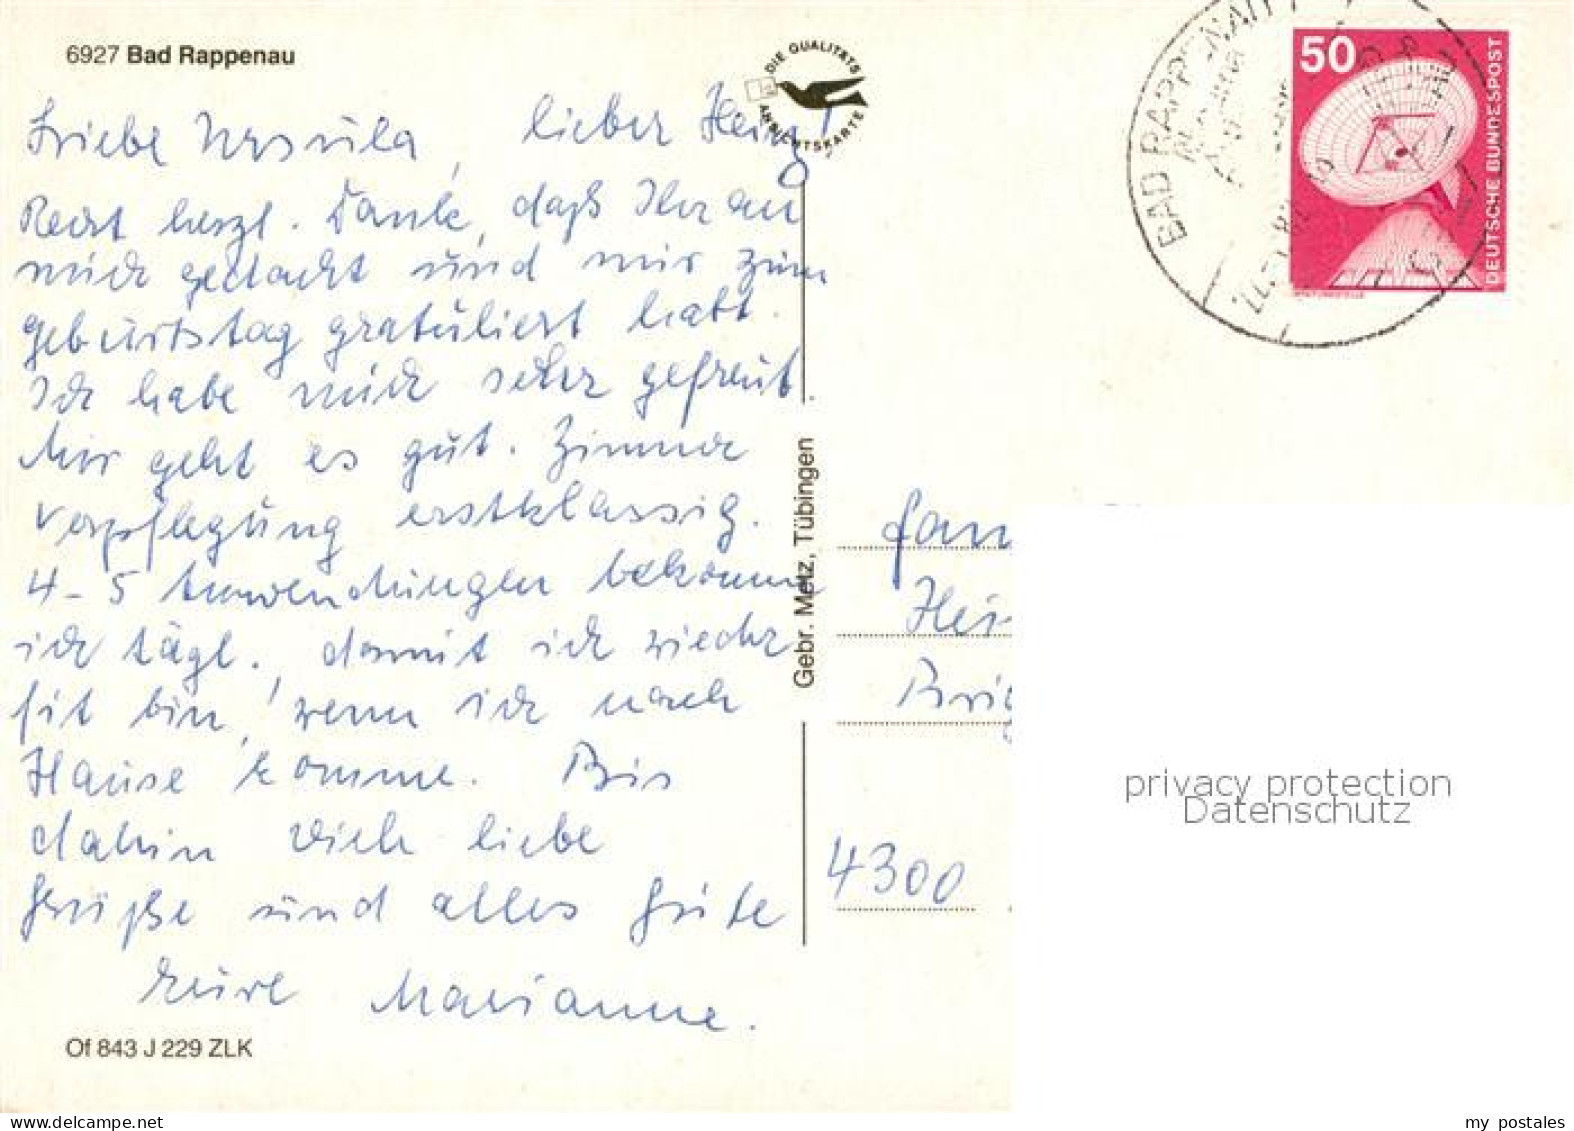 6927 Bad Rappenau
DIE QUALITÄTS
ANSICHTSKARTE
BAD RAPPENAU
50
DEUTSCHE BUNDESPOST
Liebe Ursula, lieber Heinz!
Recht herzl. Dank, daß Ihr an
mich gedacht und mir zum
Geburtstag gratuliert habt.
Ich habe mich sehr gefreut.
Mir geht es gut. Zimmer
Verpflegung erstklassig.
4-5 Anwendungen bekomme
ich tägl., damit ich wieder
fit bin, wenn ich nach
Hause komme. Bis
dahin viele liebe
Grüße und alles Gute
Eure Marianne.
Of 843 J 229 ZLK
Gebr. Metz, Tübingen
Fam
Hei
4300
privacy protection
Datenschutz
my postales